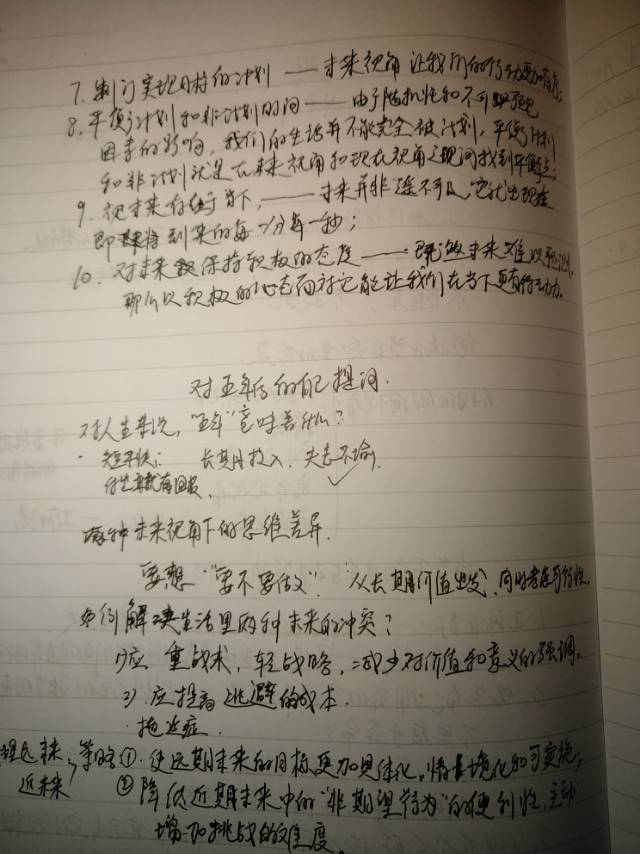 7. 制订实现目标的计划 —— 未来视角让我们的行动更加有序;
8. 平衡计划和非计划时间 —— 由于随机性和不可
因素的影响,我们的生活并不能完全被计划,平衡计划
和非计划就是在未来视角和现在视角之间找到平衡点;
9. 视未来存于当下, —— 未来并非遥不可及,它就出现在
即将到来的每一分每一秒;
10. 对未来保持积极的态度 —— 既然未来难以预测,
那么以积极的心态面对它能让我们在当下更有行动力。
对五年后的自己提问.
对人生来说,"五年"意味着什么?
· 短平快: 长期投入、矢志不渝.
付出就有回报.
两种未来视角下的思维差异.
要想"要不要做". 从长期价值出发,同时考虑可行性
如何解决生活里两种未来的冲突?
1) 应 重战术,轻战略,减少对价值和意义的强调.
2) 应提高逃避的成本.
· 拖延症.
远未来, 策略 ①. 使远期未来的目标更加具体化,情境化和可实施;
近未来 ② 降低近期未来中的"非期望行为"的便利性,主动
增加挑战的难度。